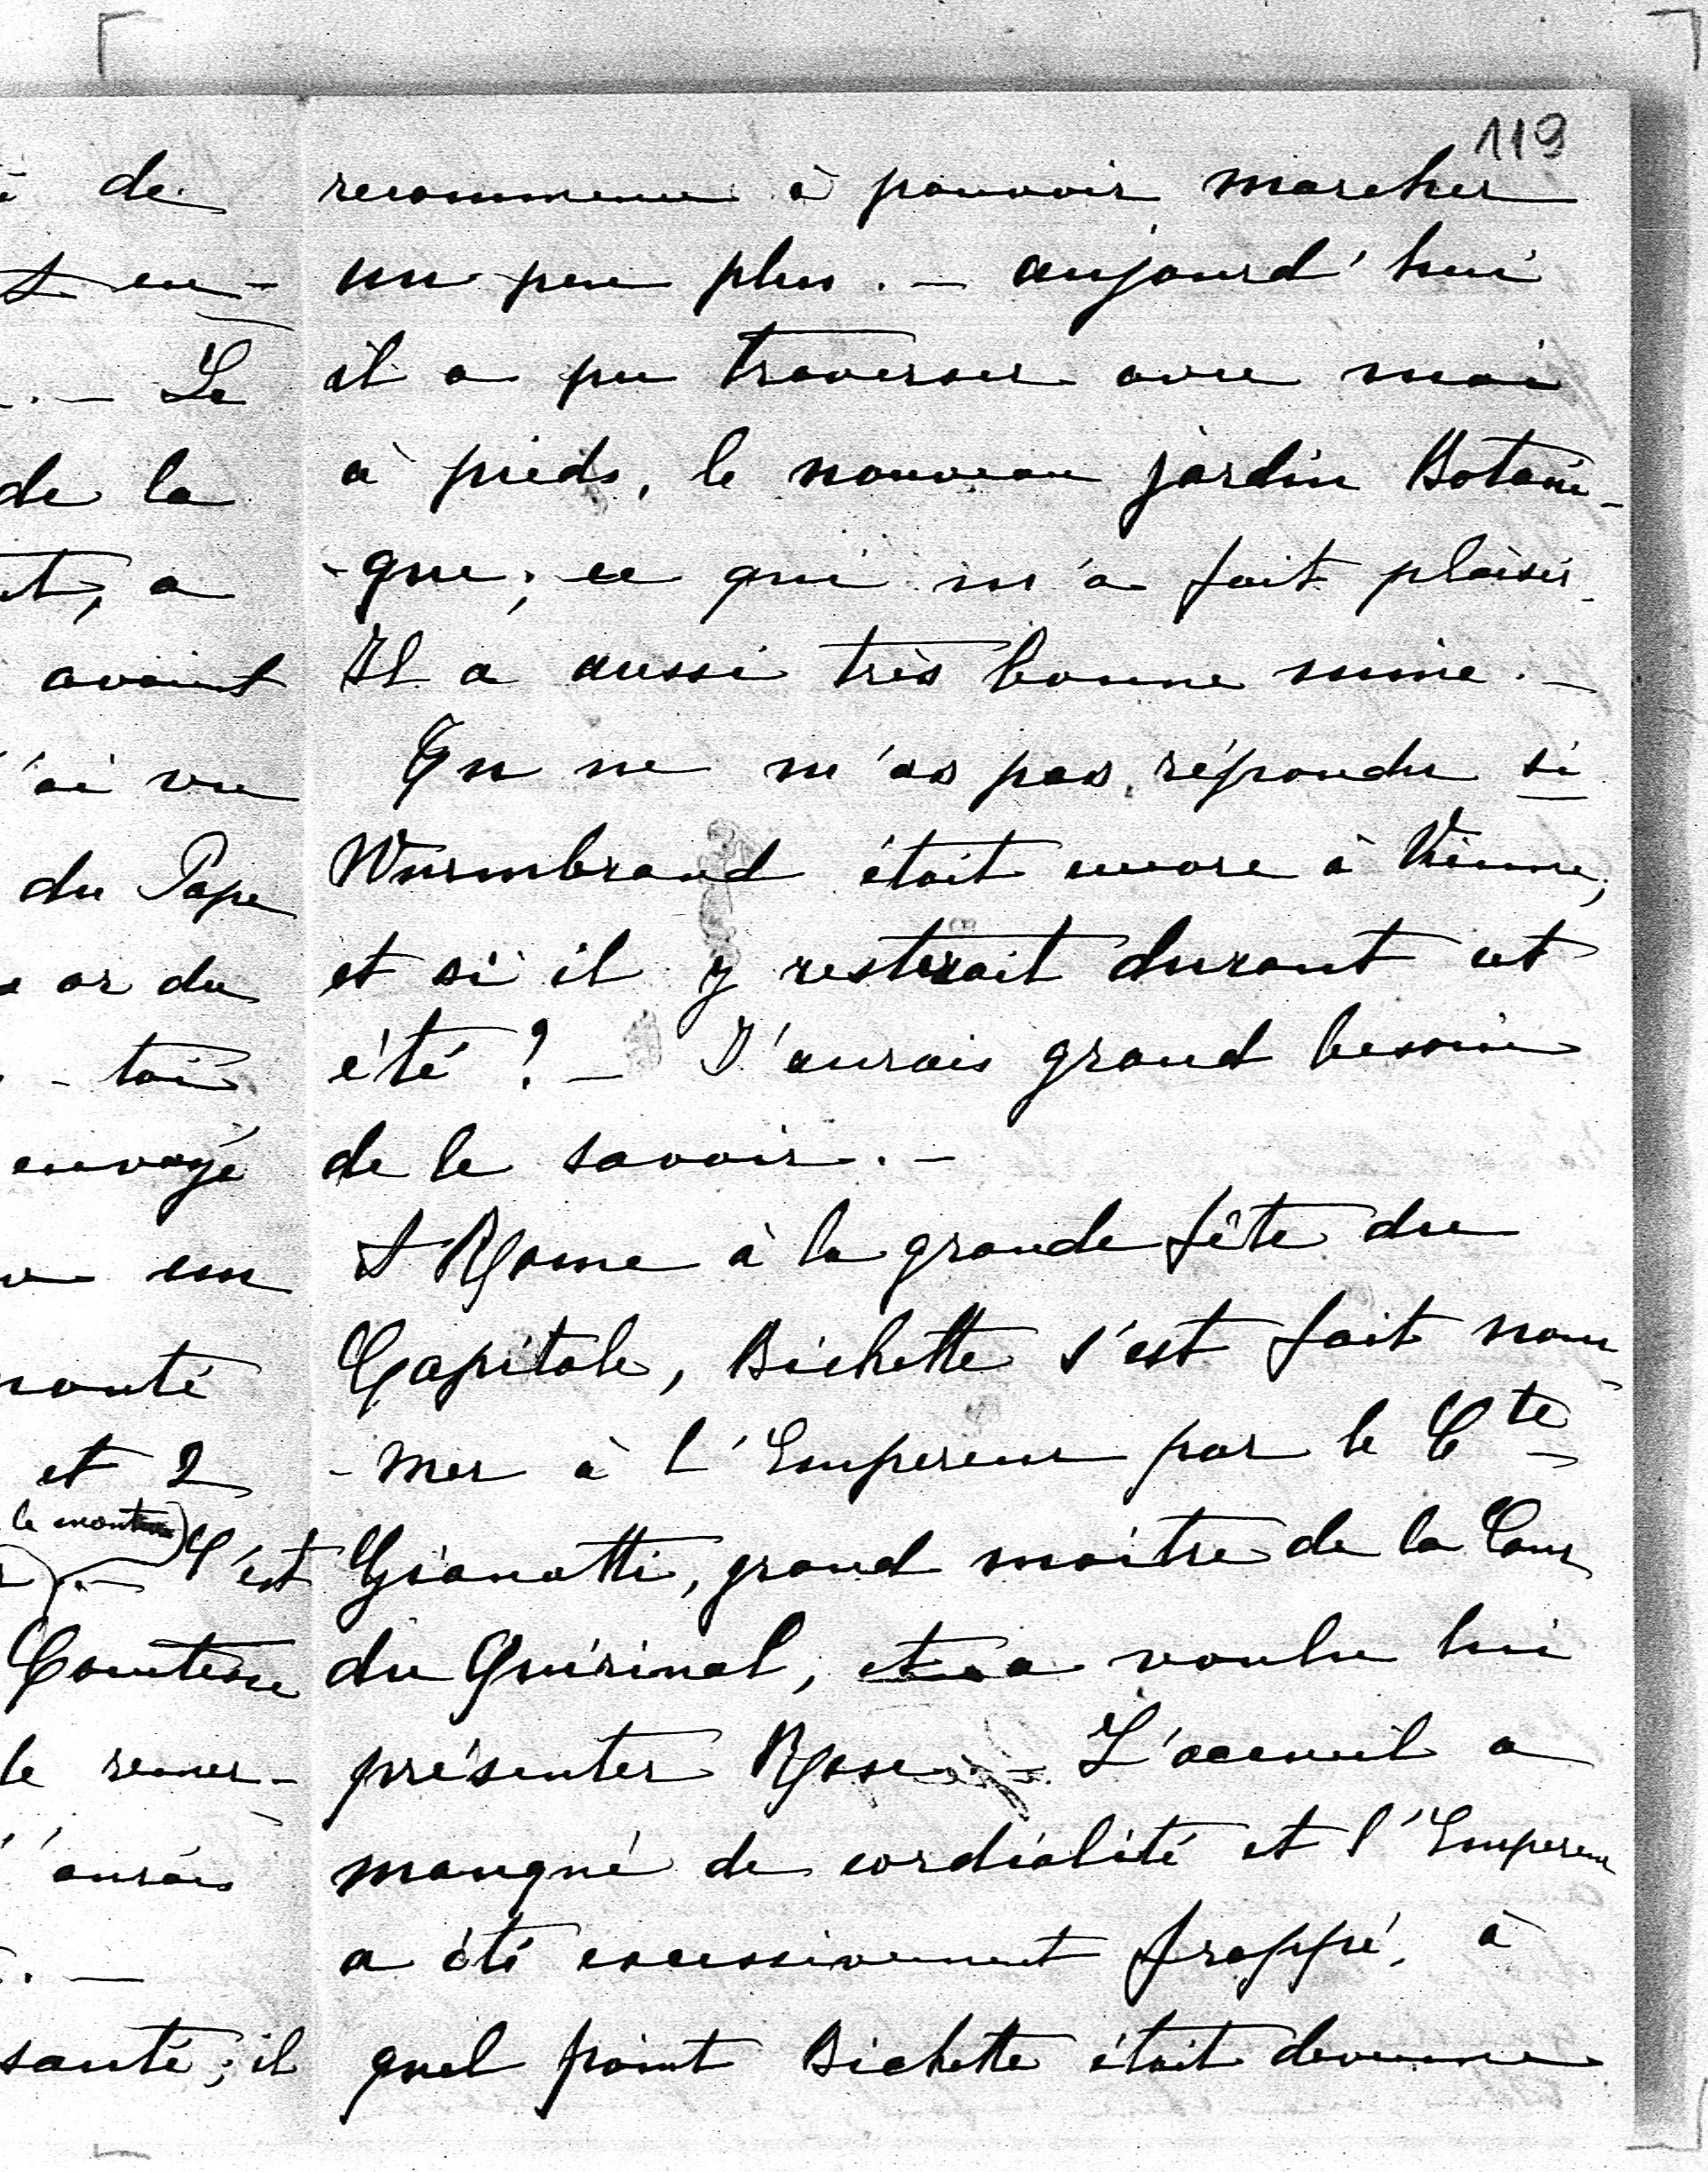 119
recommence à pouvoir marcher
un peu plus. — aujourd'hui
il a pu traverser avec moi
à pieds, le nouveau jardin Botani-
-que, ce qui m'a fait plaisir.
Il a aussi très bonne mine. —
Tu ne m'as pas répondu si
Wurmbrand était encore à Vienne,
et si il y resterait durant cet
été ? — J'aurais grand besoin
de le savoir. —
A Rome à la grande fête du
Capitole, Bichette s'est fait nom-
-mer à l'Empereur par le Cte
Gianotti, grand maître de la Cour
du Quirinal, et a voulu lui
présenter Rose. — L'acceuil a
manqué de cordialité et l'Empereur
a été excessivement frappé, à
quel point Bichette était devenue
de
en-
. — Le
de la
a
avaient
'ai vu
du Pape
or du
- toi
envoyé
un
et 2
le
. — C'est
Comtesse
le remer-
'aurais
. —
santé ; il